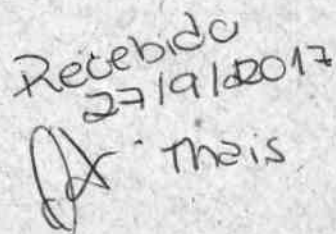 Recebido
27/9/2017
Thais